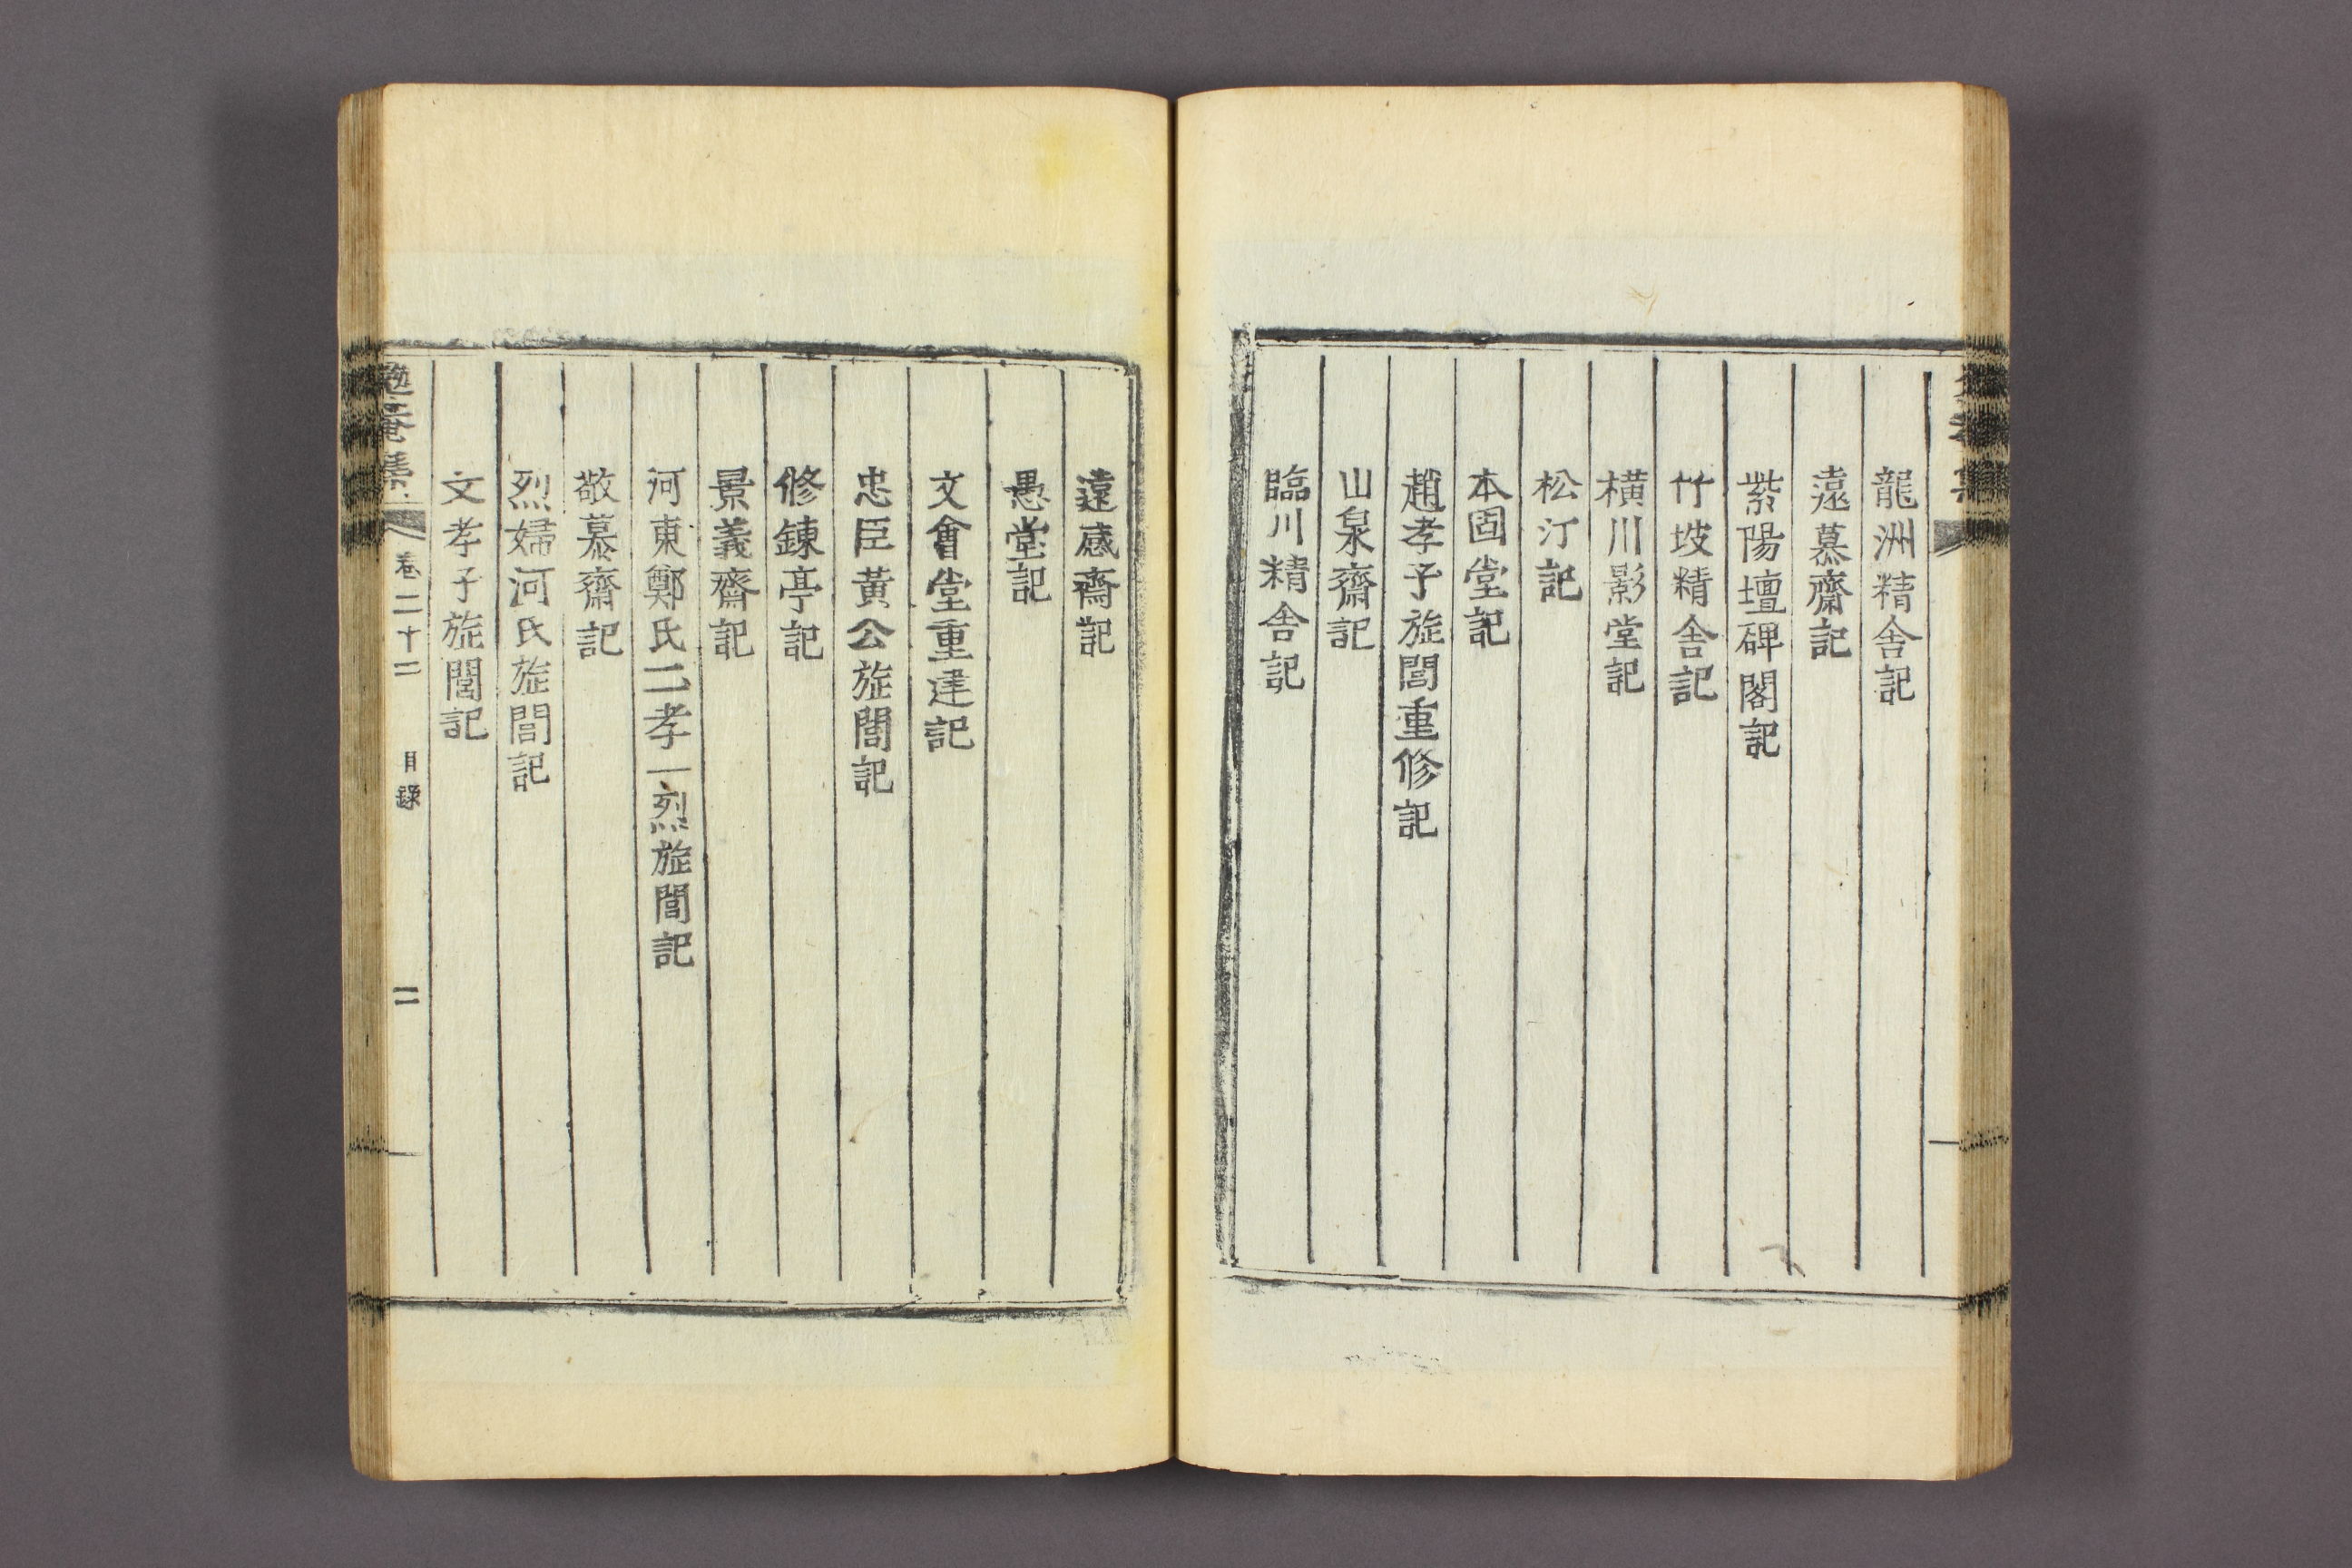 龍洲精舍記
遠慕齋記
紫陽壇碑閣記
竹坡精舍記
橫川影堂記
松汀記
本固堂記
趙孝子旌閭重修記
山泉齋記
臨川精舍記
遠感齋記
愚堂記
文會堂重建記
忠臣黃公旌閭記
修鍊亭記
景義齋記
河東鄭氏二孝一烈旌閭記
敬慕齋記
烈婦河氏旌閭記
文孝子旌閭記
勉菴集 卷二十二 目錄 二